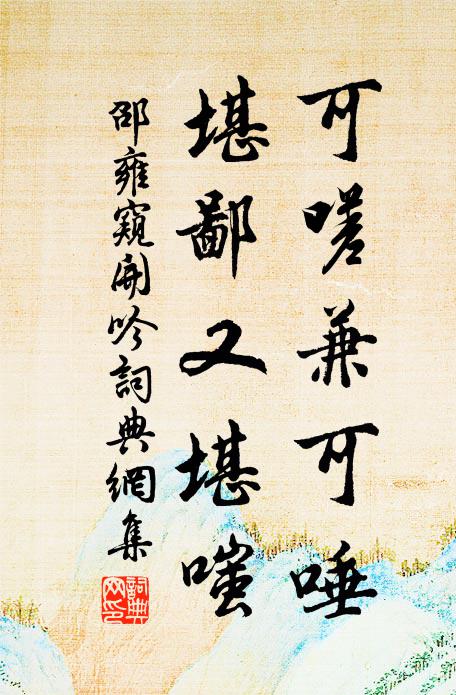 可嗟兼可唾
堪鄙又堪嗤
邵雍窺開吟詞典網集
詞典網印